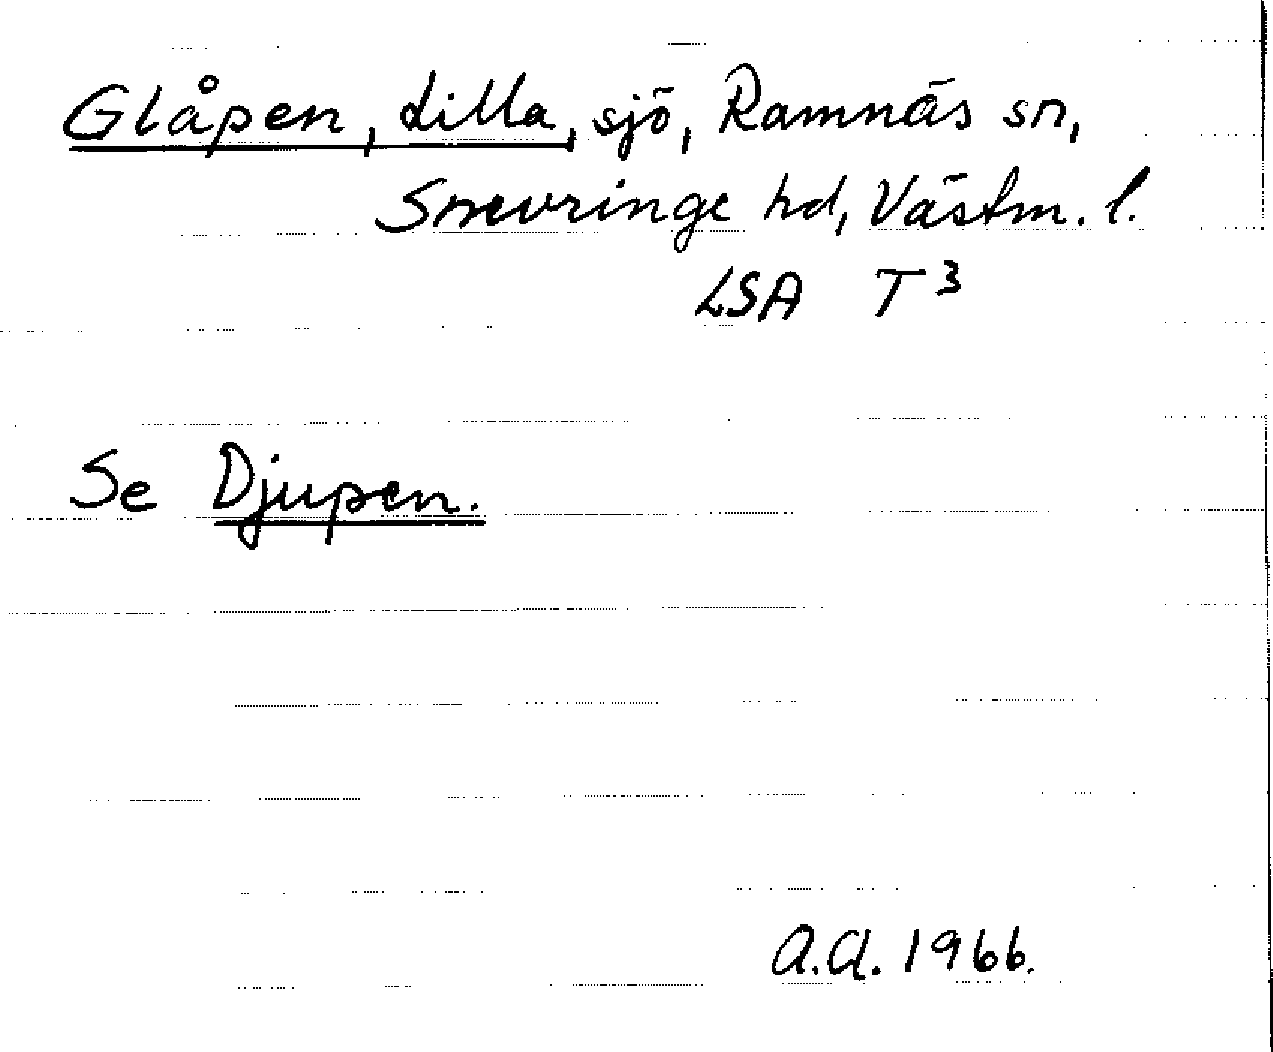 Glåpen, Lilla, sjö, Ramnäs sn,
Snevringe hd, Västm. l.
LSA T³
Se Djupen.
A.A. 1966.